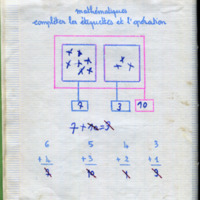 mathématiques
compléter les étiquettes et l'opération
7 3 10
7 + =
6 5 4 3
+ 4 + 3 + 2 + 1